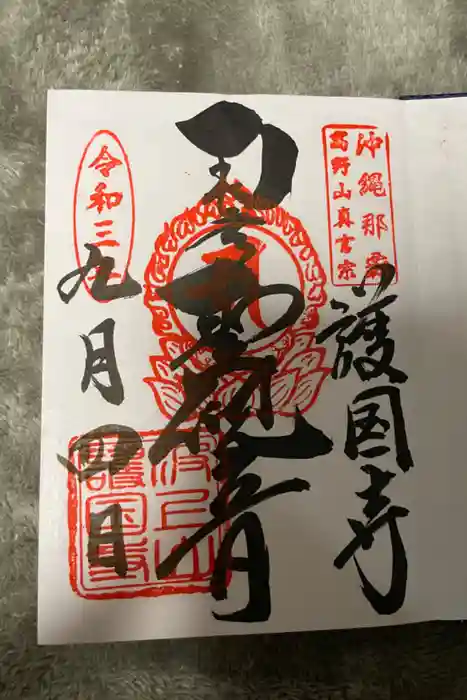 沖縄那覇
高野山真言宗
護国寺
聖観音
令和三年
九月四日
波上山
護国寺